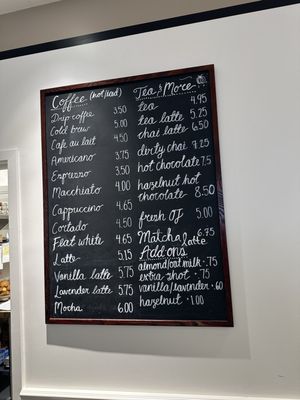 Coffee (hot/iced)
Drip coffee 3.50
Cold brew 5.00
Cafe au lait 4.50
Americano 3.75
Espresso 3.50
Macchiato 4.00
Cappuccino 4.65
Cortado 4.50
Flat white 4.65
Latte 5.15
Vanilla latte 5.75
Lavender latte 5.75
Mocha 6.00
Tea & More
tea 4.95
tea latte 5.25
chai latte 6.50
dirty chai 7.25
hot chocolate 7.5
hazelnut hot
chocolate 8.50
fresh OJ 5.00
Matcha latte 6.75
Add ons
almond/oat milk .75
extra shot .75
vanilla/lavender .60
hazelnut 1.00